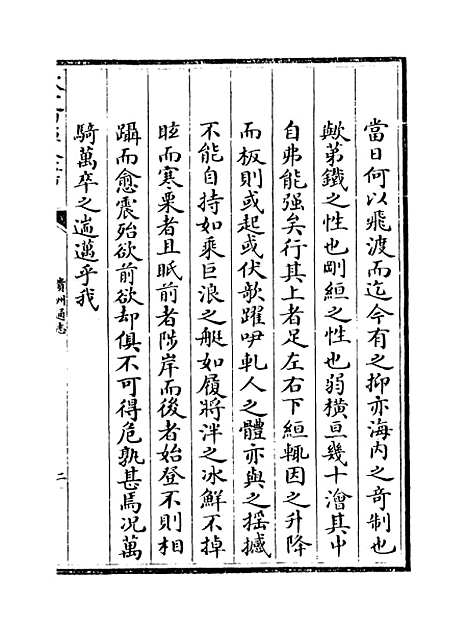 當日何以飛渡而迄今有之抑亦海内之奇制也
歟第鐵之性也剛絙之性也弱横亘幾十澮其中
自弗能强矣行其上者足左右下絙輒因之升降
而板則或起或伏欹躍咿軋人之體亦與之揺撼
不能自持如乘巨浪之艇如履將泮之冰鮮不掉
眩而寒栗者且眂前者陟岸而後者始登不則相
躡而愈震殆欲前欲却俱不可得危孰甚焉况萬
騎萬卒之遄邁乎我
貴州通志
二